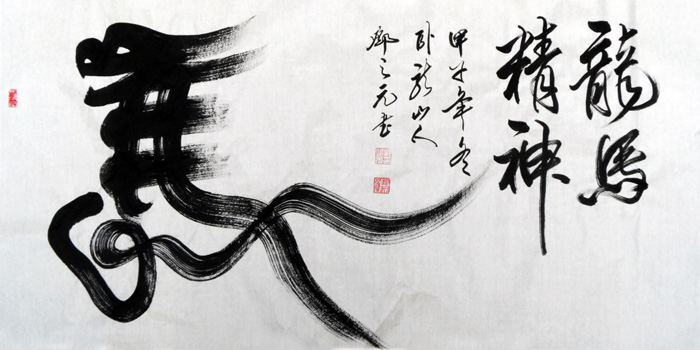 龍馬
精神
甲午年冬
卧龍山人
之元書